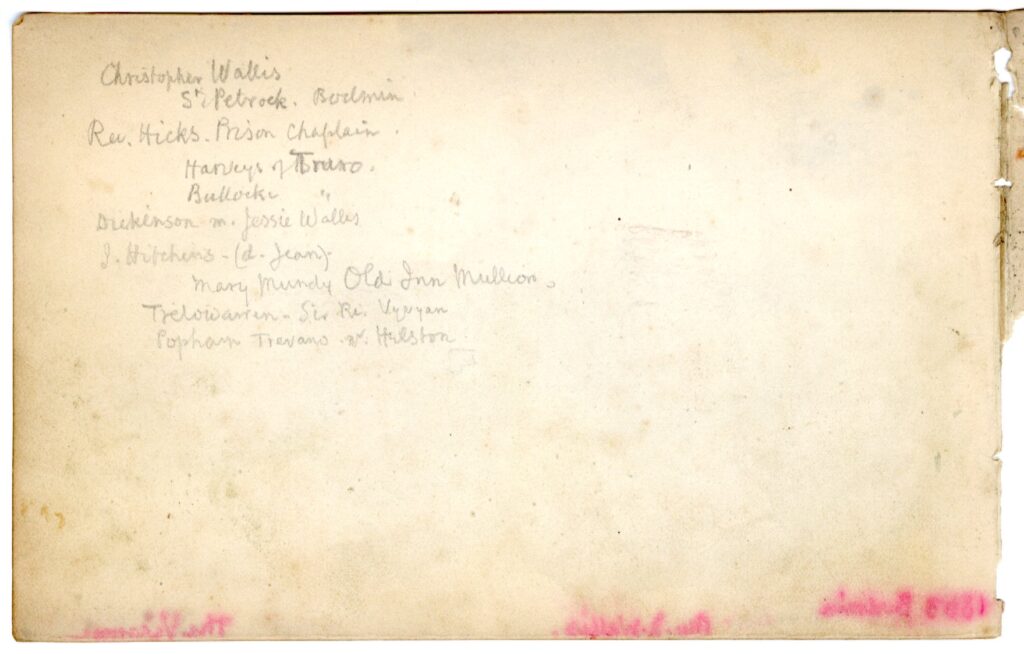 Christopher Wallis
St Petrock. Bodmin
Rev. Hicks. Prison Chaplain.
Harveys of Truro.
Bullocks "
Dickinson m. Jessie Wallis
J. Hitchens - (d. Jean)
Mary Mundy Old Inn Mullion.
Trelowarren - Sir Ri. Vyvyan
Popham Trevano nr. Helston
Bodmin
Rev. J. Wallis.
The Vicarage